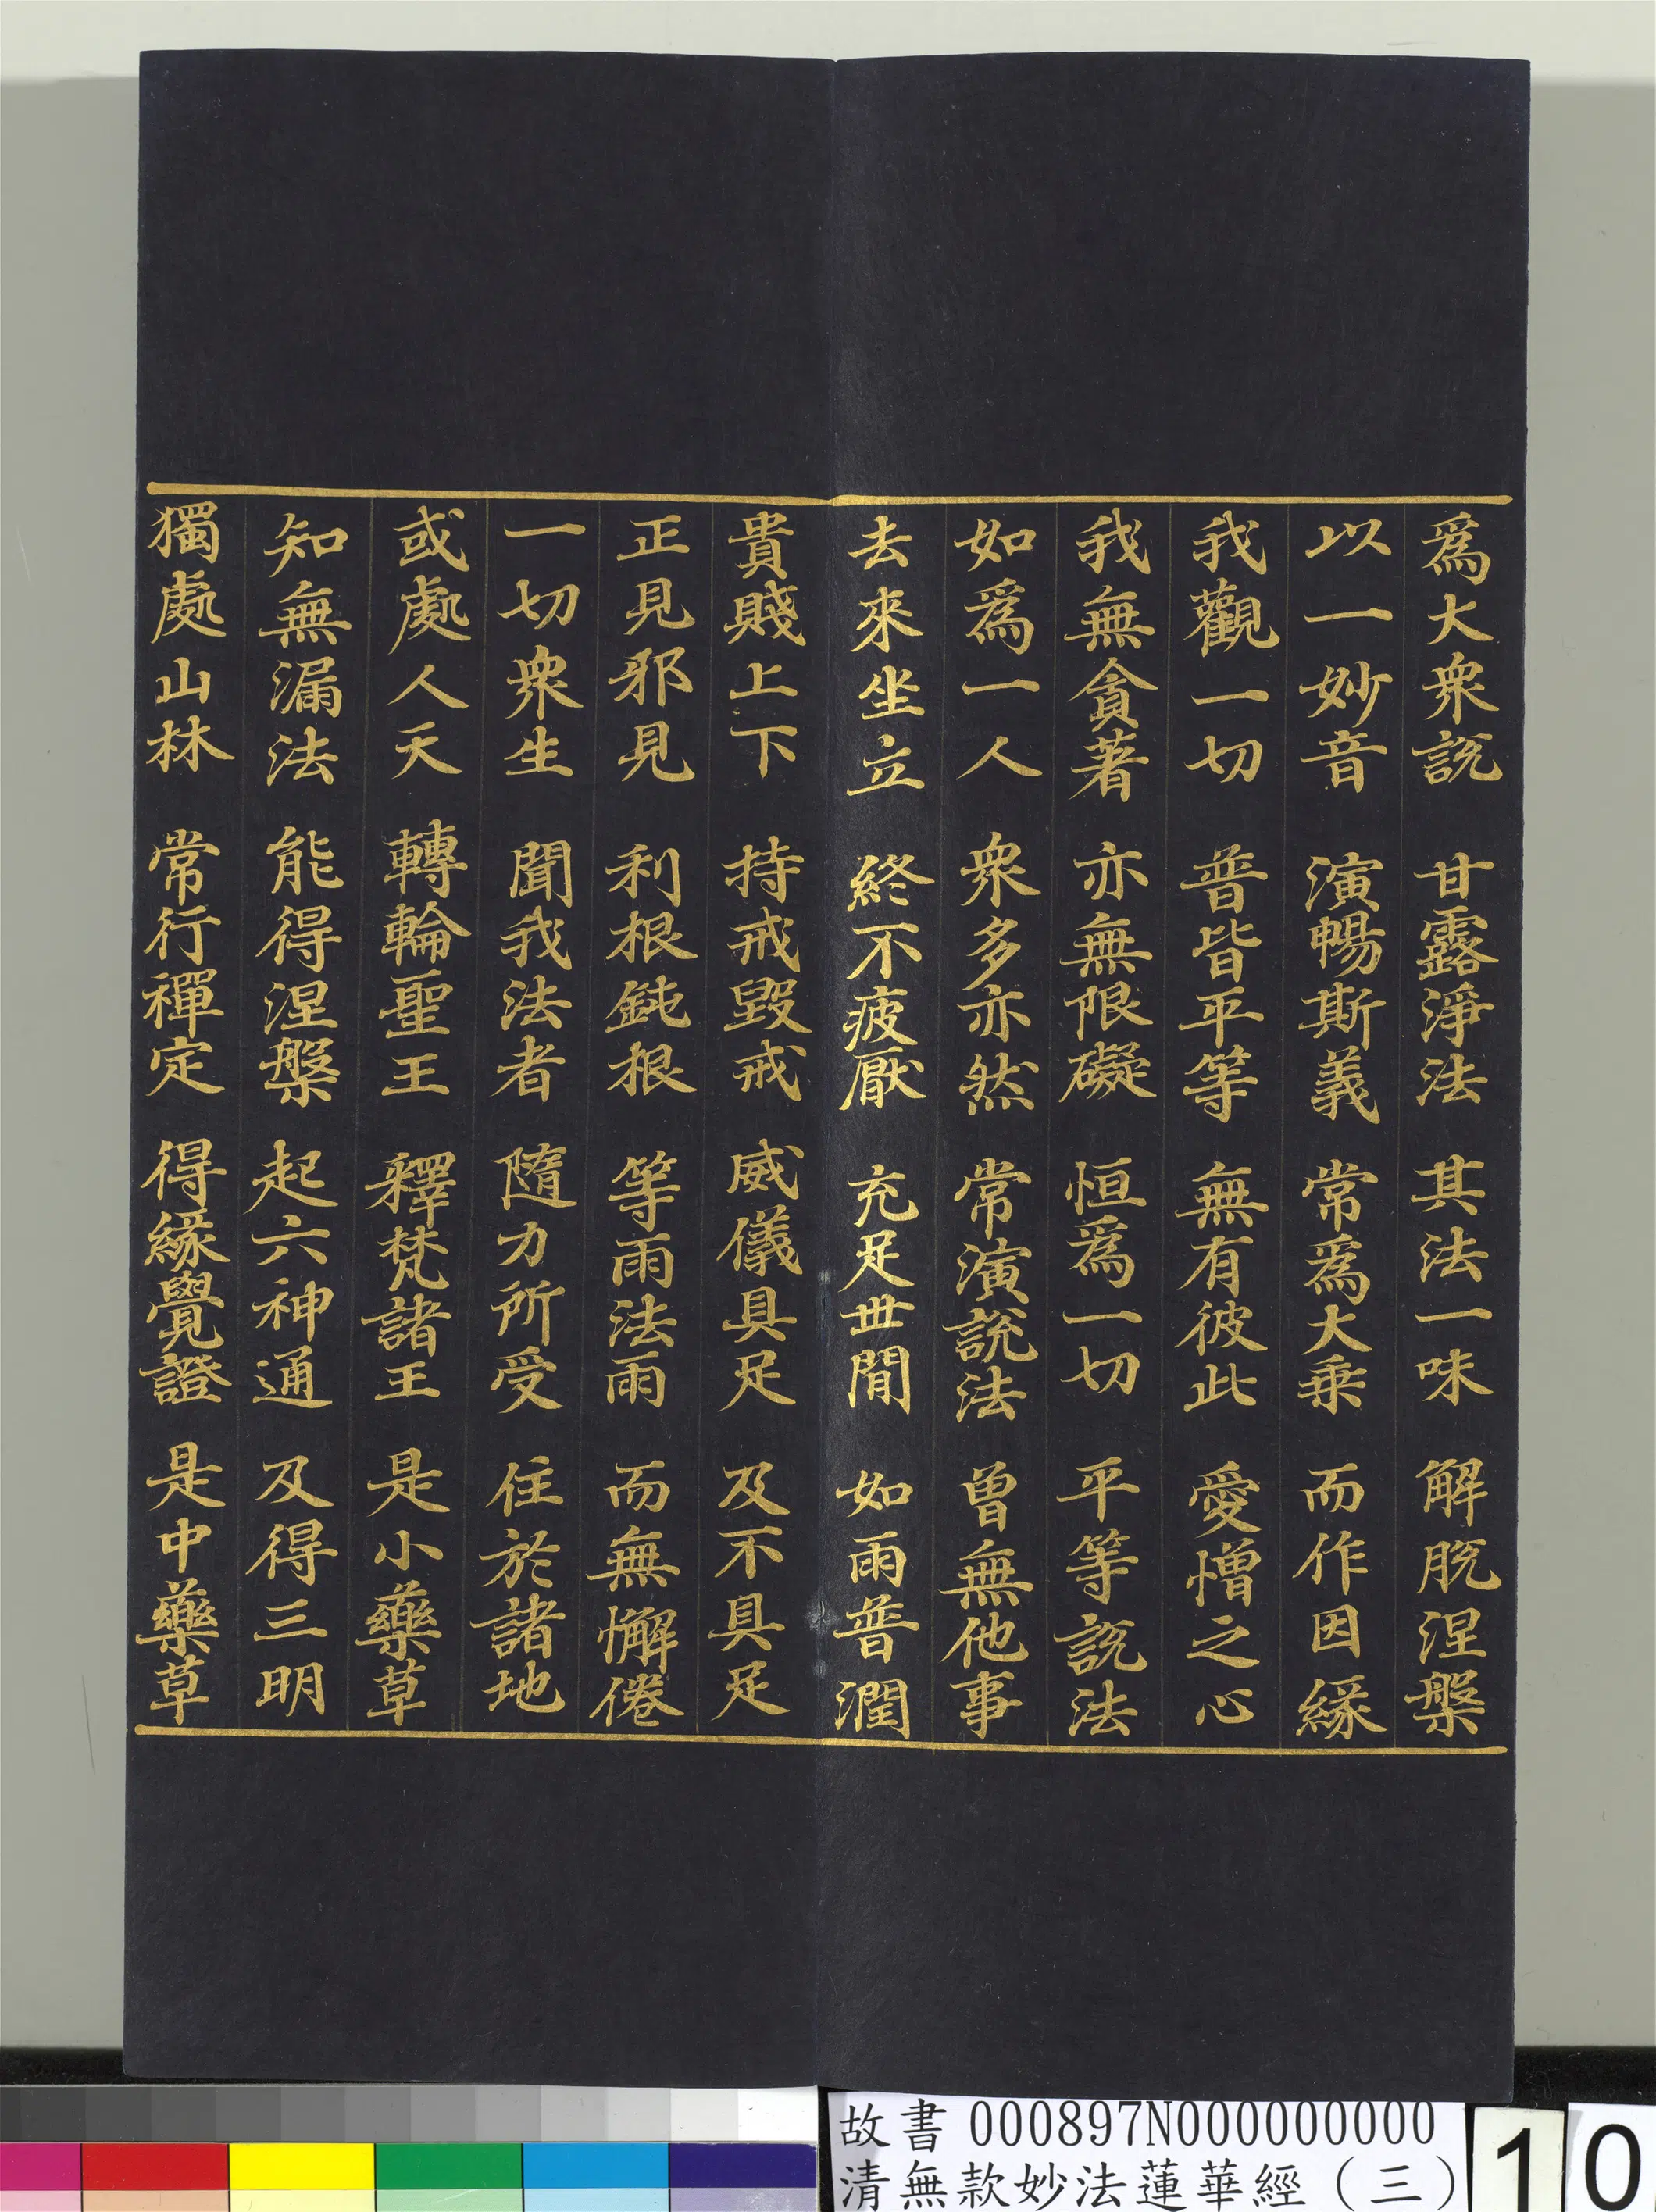 爲大衆說 甘露淨法 其法一味 解脫涅槃
以一妙音 演暢斯義 常爲大乗 而作因緣
我觀一切 普皆平等 無有彼此 愛憎之心
我無貪著 亦無限礙 恒爲一切 平等說法
如爲一人 衆多亦然 常演說法 曾無他事
去來坐立 終不疲厭 充足世間 如雨普潤
貴賤上下 持戒毀戒 威儀具足 及不具足
正見邪見 利根鈍根 等雨法雨 而無懈倦
一切衆生 聞我法者 隨力所受 住於諸地
或處人天 轉輪聖王 釋梵諸王 是小藥草
知無漏法 能得涅槃 起六神通 及得三明
獨處山林 常行禪定 得緣覺證 是中藥草
故書 000897N000000000
清無款妙法蓮華經（三）
10